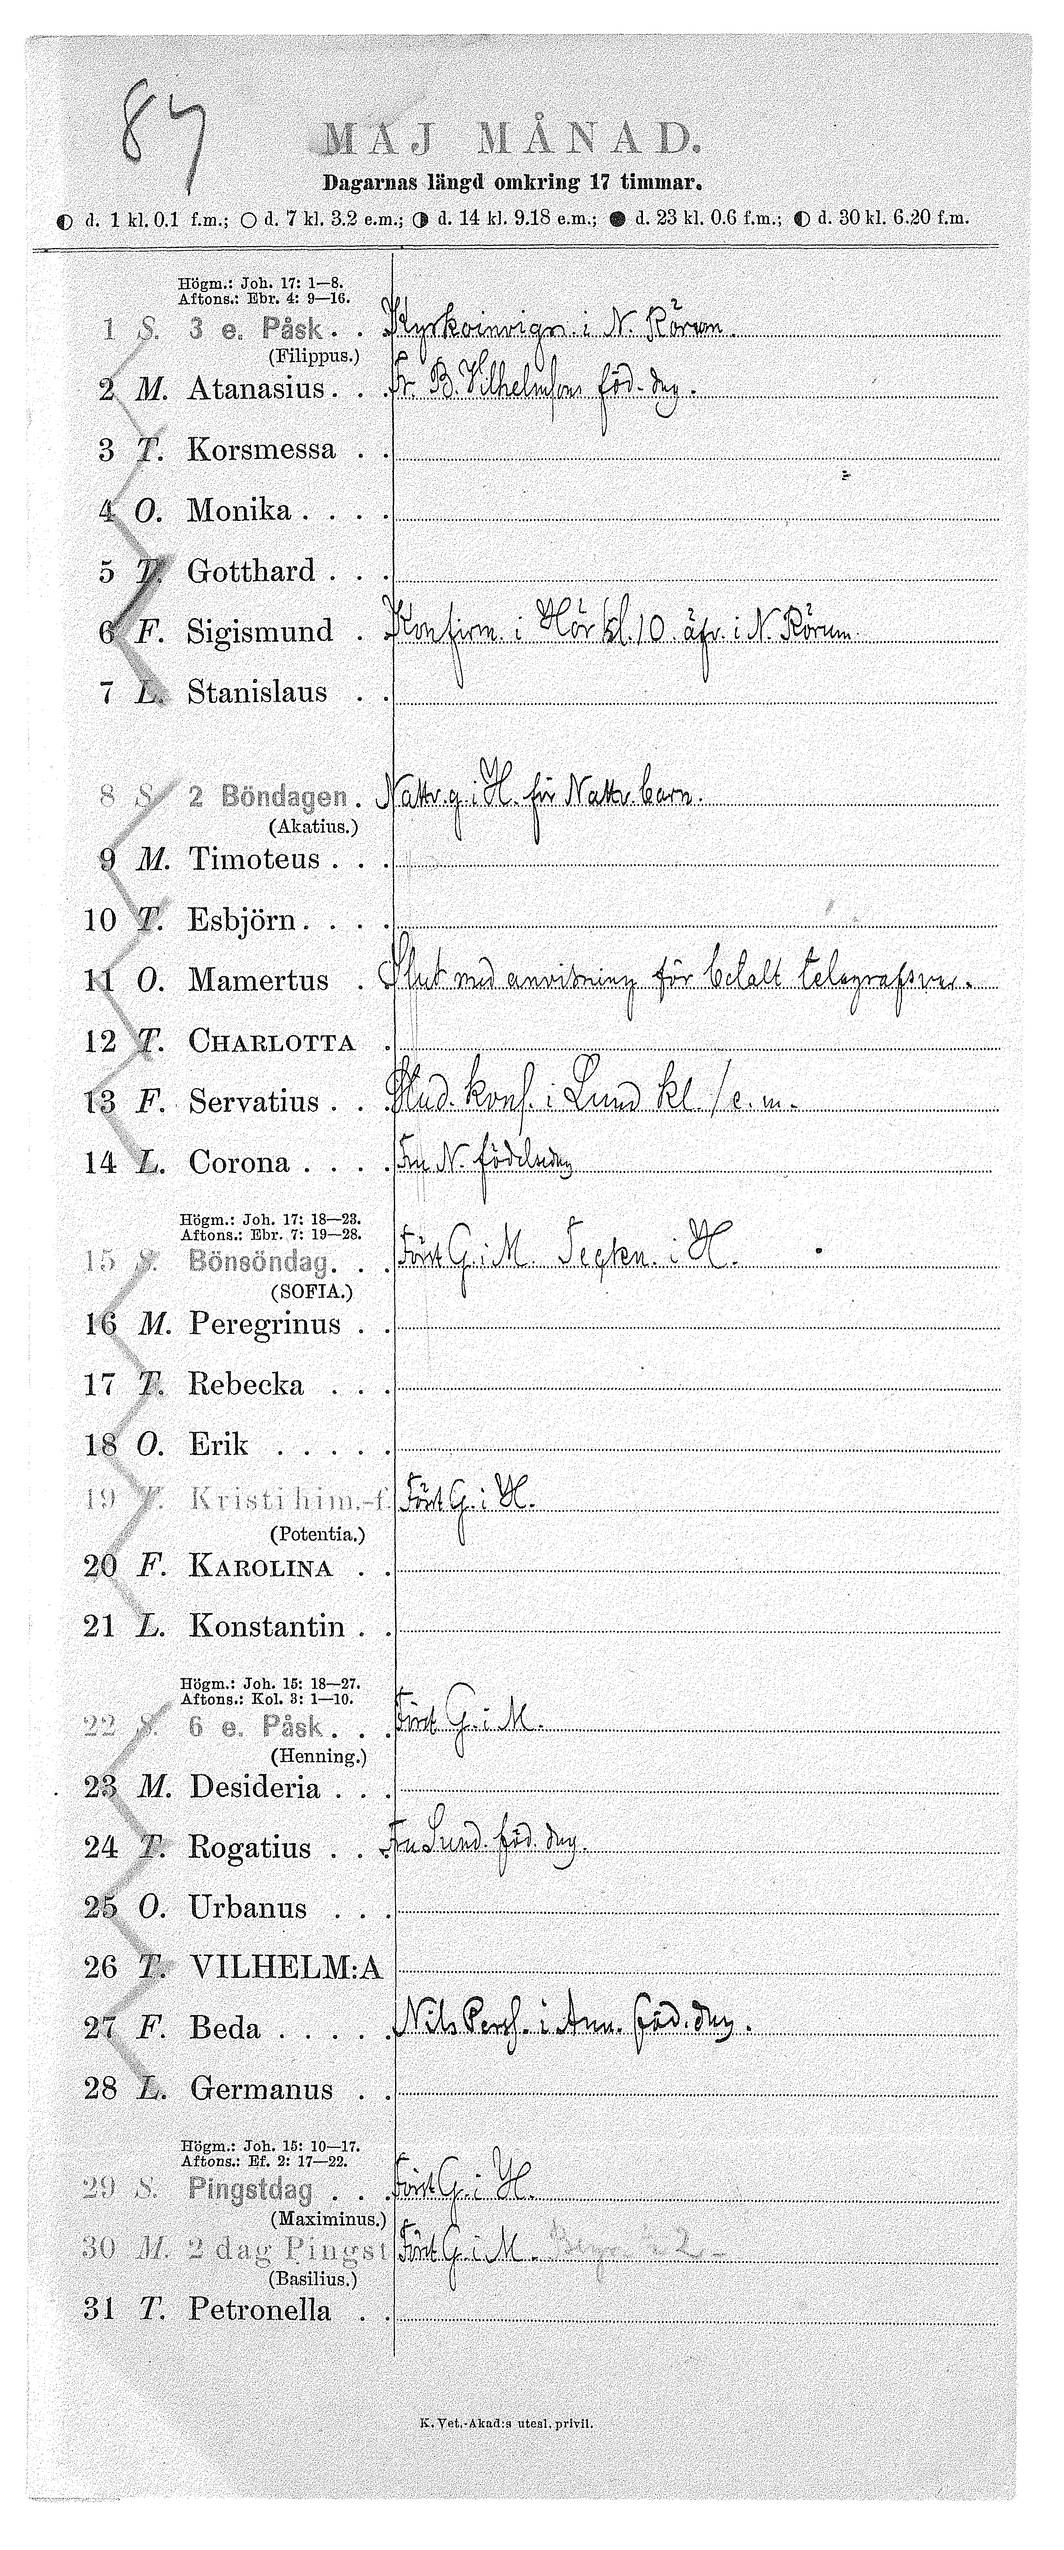 87
MAJ MÅNAD.
Dagarnas längd omkring 17 timmar.
◐ d. 1 kl. 0.1 f.m.; ○ d. 7 kl. 3.2 e.m.; ◑ d. 14 kl. 9.18 e.m.; ● d. 23 kl. 0.6 f.m.; ◐ d. 30 kl. 6.20 f.m.
Högm.: Joh. 17: 1—8.
Aftons.: Ebr. 4: 9—16.
1 S. 3 e. Påsk . . Kyrkoinvign. i N. Rörum.
(Filippus.)
2 M. Atanasius . . . Fr. B. Vilhelmsons föd. dag.
3 T. Korsmessa . .
4 O. Monika . . . .
5 T. Gotthard . . .
6 F. Sigismund . Konfirm. i Hör kl. 10. äfv. i N. Rörum.
7 L. Stanislaus . .
8 S. 2 Böndagen . Nattv. g. i H. för Nattv. barn.
(Akatius.)
9 M. Timoteus . . .
10 T. Esbjörn . . . .
11 O. Mamertus . Slut med anvisning för betalt telegrafsvar.
12 T. CHARLOTTA .
13 F. Servatius . . . Stud. konf. i Lund kl. 1 e. m.
14 L. Corona . . . . Fru N. födelsedag
Högm.: Joh. 17: 18—23.
Aftons.: Ebr. 7: 19—28.
15 S. Bönsöndag. . . Först G. i M. i H.
(SOFIA.)
16 M. Peregrinus . .
17 T. Rebecka . . .
18 O. Erik . . . . .
19 T. Kristi him.-f. Först G. i H.
(Potentia.)
20 F. KAROLINA . .
21 L. Konstantin . .
Högm.: Joh. 15: 18—27.
Aftons.: Kol. 3: 1—10.
22 S. 6 e. Påsk . . . Först G. i M.
(Henning.)
23 M. Desideria . . .
24 T. Rogatius . . . Fru Lund. föd. dag.
25 O. Urbanus . . .
26 T. VILHELM:A
27 F. Beda . . . . . Nils Pers. i Ann. föd. dag.
28 L. Germanus . .
Högm.: Joh. 15: 10—17.
Aftons.: Ef. 2: 17—22.
29 S. Pingstdag . . . Först G. i H.
(Maximinus.)
30 M. 2 dag Pingst Först G. i M.
(Basilius.)
31 T. Petronella . .
K. Vet.-Akad:s utesl. privil.